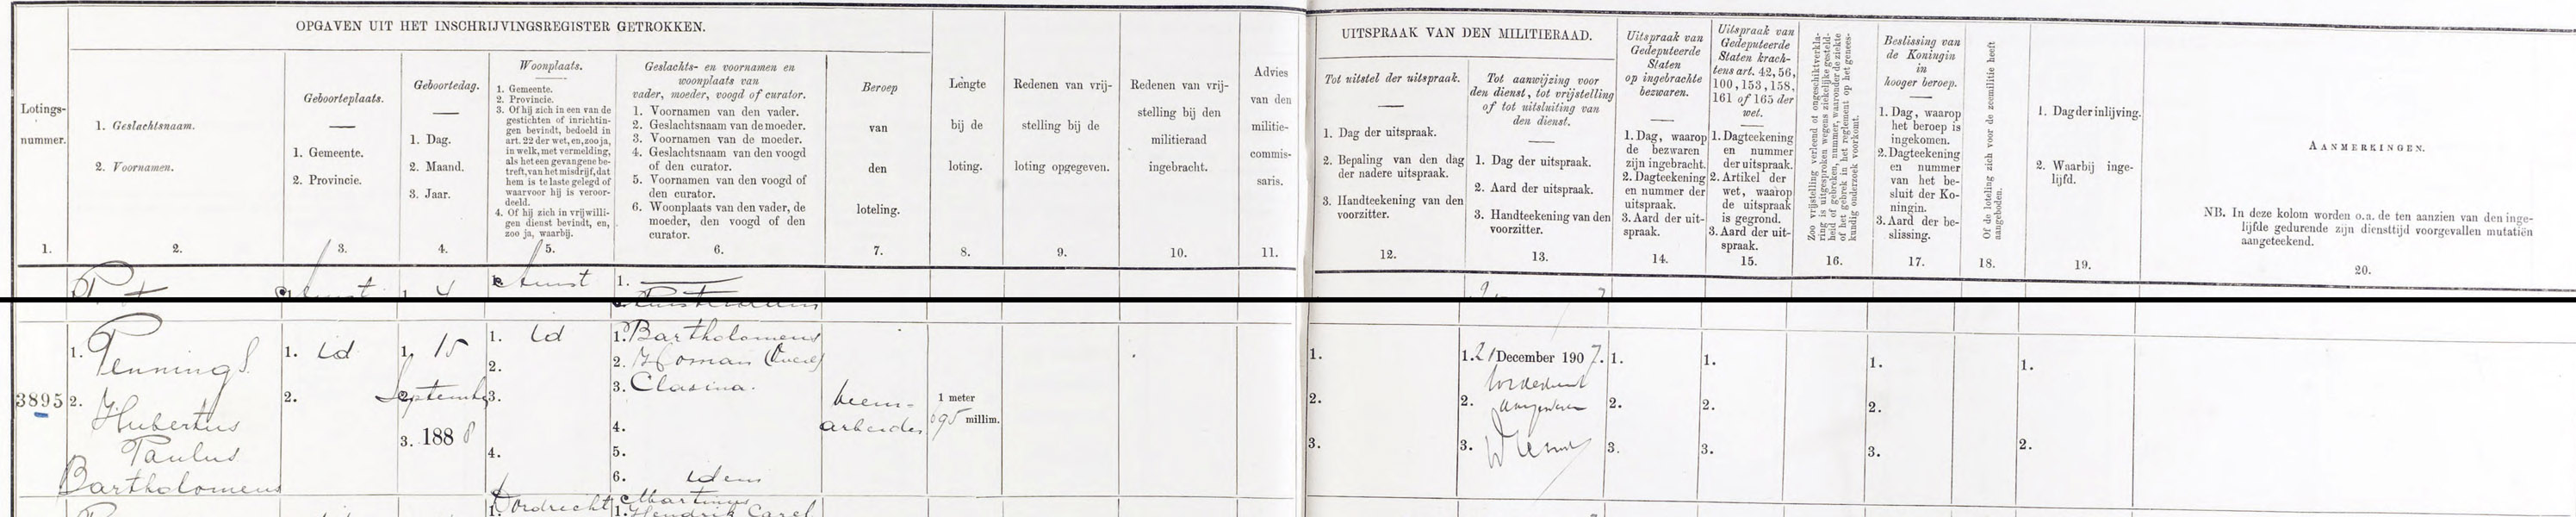 OPGAVEN UIT HET INSCHRIJVINGSREGISTER GETROKKEN.
Lotings-
nummer.
1.
1. Geslachtsnaam.
2. Voornamen.
2.
Geboorteplaats.
1. Gemeente.
2. Provincie.
3.
Geboortedag.
1. Dag.
2. Maand.
3. Jaar.
4.
Woonplaats.
1. Gemeente.
2. Provincie.
3. Of hij zich in een van de
gestichten of inrichtin-
gen bevindt, bedoeld in
art. 22 der wet, en, zoo ja,
in welk, met vermelding,
als het een gevangene be-
treft, van het misdrijf, dat
hem is te laste gelegd of
waarvoor hij is veroor-
deeld.
4. Of hij zich in vrijwilli-
gen dienst bevindt, en,
zoo ja, waarbij.
5.
Geslachts- en voornamen en
woonplaats van
vader, moeder, voogd of curator.
1. Voornamen van den vader.
2. Geslachtsnaam van de moeder.
3. Voornamen van de moeder.
4. Geslachtsnaam van den voogd
of den curator.
5. Voornamen van den voogd of
den curator.
6. Woonplaats van den vader, de
moeder, den voogd of den
curator.
6.
Beroep
van
den
loteling.
7.
Lengte
bij de
loting.
8.
Redenen van vrij-
stelling bij de
loting opgegeven.
9.
Redenen van vrij-
stelling bij den
militieraad
ingebracht.
10.
Advies
van den
militie-
commis-
saris.
11.
UITSPRAAK VAN DEN MILITIERAAD.
Tot uitstel der uitspraak.
1. Dag der uitspraak.
2. Bepaling van den dag
der nadere uitspraak.
3. Handteekening van den
voorzitter.
12.
Tot aanwijzing voor
den dienst, tot vrijstelling
of tot uitsluiting van
den dienst.
1. Dag der uitspraak.
2. Aard der uitspraak.
3. Handteekening van den
voorzitter.
13.
Uitspraak van
Gedeputeerde
Staten
op ingebrachte
bezwaren.
1. Dag, waarop
de bezwaren
zijn ingebracht.
2. Dagteekening
en nummer der
uitspraak.
3. Aard der uit-
spraak.
14.
Uitspraak van
Gedeputeerde
Staten krach-
tens art. 42, 56,
100, 153, 158,
161 of 165 der
wet.
1. Dagteekening
en nummer
der uitspraak.
2. Artikel der
wet, waarop
de uitspraak
is gegrond.
3. Aard der uit-
spraak.
15.
Zoo vrijstelling verleend of ongeschiktverkla-
ring is uitgesproken wegens ziekelijke gesteld-
heid of gebreken, nummer, waaronder de ziekte
of het gebrek in het reglement op het genees-
kundig onderzoek voorkomt.
16.
Beslissing van
de Koningin
in
hooger beroep.
1. Dag, waarop
het beroep is
ingekomen.
2. Dagteekening
en nummer
van het be-
sluit der Ko-
ningin.
3. Aard der be-
slissing.
17.
Of de loteling zich voor de zeemilitie heeft
aangeboden.
18.
1. Dag der inlijving.
2. Waarbij inge-
lijfd.
19.
AANMERKINGEN.
NB. In deze kolom worden o.a. de ten aanzien van den inge-
lijfde gedurende zijn diensttijd voorgevallen mutatiën
aangeteekend.
20.
Amst
1.
3895
1. Pennings.
2. Hubertus
Paulus
Bartholomeus
1. id
2.
1. 15
2. September
3. 1888
1. id
2.
3.
4.
1. Bartholomeus
2. Homan
3. Clasina.
4.
5.
6. idem
veem-
arbeider
1 meter
695 millim.
1.
2.
3.
1. 21 December 1907.
2.
3.
1.
2.
3.
1.
2.
3.
1.
2.
3.
1.
2.
Dordrecht
Martinus
1. Hendrik Carel